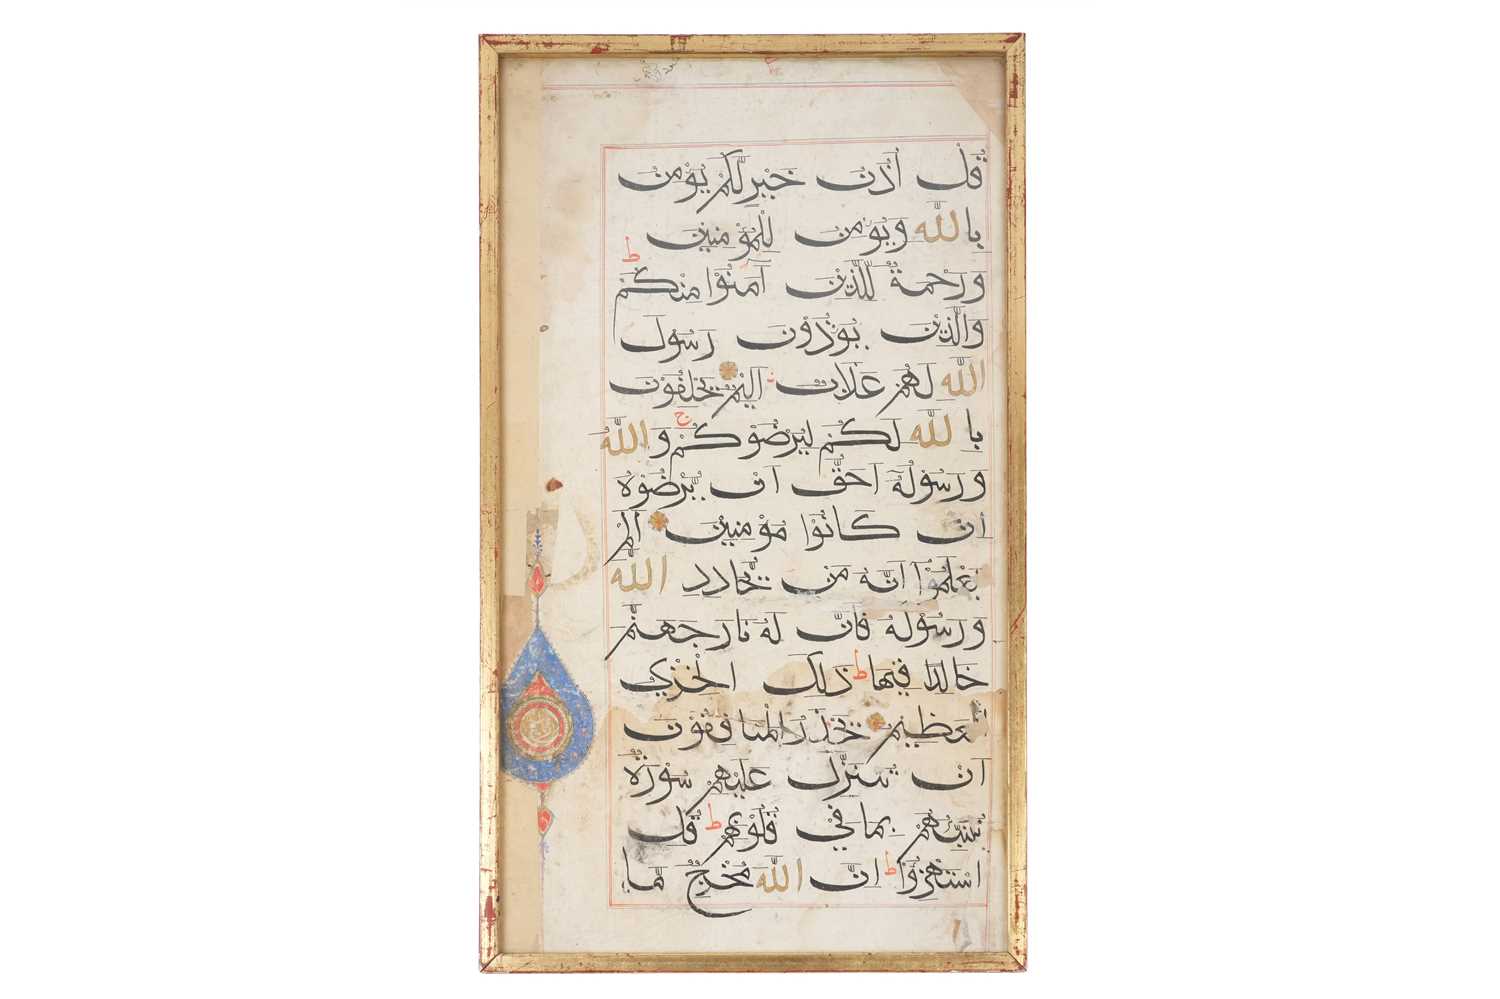 قُلْ أُذُنُ خَيْرٍ لَّكُمْ يُؤْمِنُ
بِاللَّهِ وَيُؤْمِنُ لِلْمُؤْمِنِينَ ط
وَرَحْمَةٌ لِّلَّذِينَ آمَنُوا مِنْكُمْ
وَالَّذِينَ يُؤْذُونَ رَسُولَ
اللَّهِ لَهُمْ عَذَابٌ أَلِيمٌ يَحْلِفُونَ
بِاللَّهِ لَكُمْ لِيُرْضُوكُمْ ج وَاللَّهُ
وَرَسُولُهُ أَحَقُّ أَنْ يُرْضُوهُ
إِنْ كَانُوا مُؤْمِنِينَ أَلَمْ
يَعْلَمُوا أَنَّهُ مَنْ يُحَادِدِ اللَّهَ
وَرَسُولَهُ فَأَنَّ لَهُ نَارَ جَهَنَّمَ
خَالِدًا فِيهَا ط ذَلِكَ الْخِزْيُ
الْعَظِيمُ يَحْذَرُ الْمُنَافِقُونَ
أَنْ تُنَزَّلَ عَلَيْهِمْ سُورَةٌ
تُنَبِّئُهُمْ بِمَا فِي قُلُوبِهِمْ ط قُلِ
اسْتَهْزِؤُا ط إِنَّ اللَّهَ مُخْرِجٌ مَّا